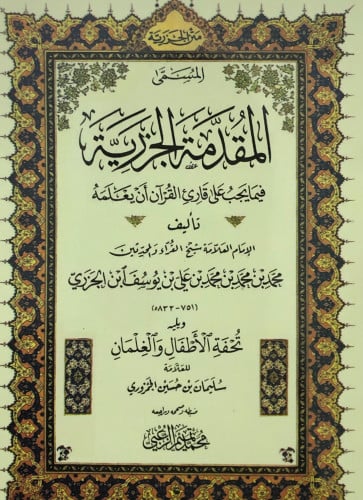 متن الجزرية
المسمى
المقدمة الجزرية
فيما يجب على قارئ القرآن أن يعلمه
تأليف
الإمام العلامة شيخ القراء والمحدثين
محمد بن محمد بن محمد بن علي بن يوسف ابن الجزري
(٧٥١-٨٣٣ه)
ويليه
تحفة الأطفال والغلمان
للعلامة
سليمان بن حسين الجمزوري
ضبطه وصححه وراجعه
محمد تميم الزعبي